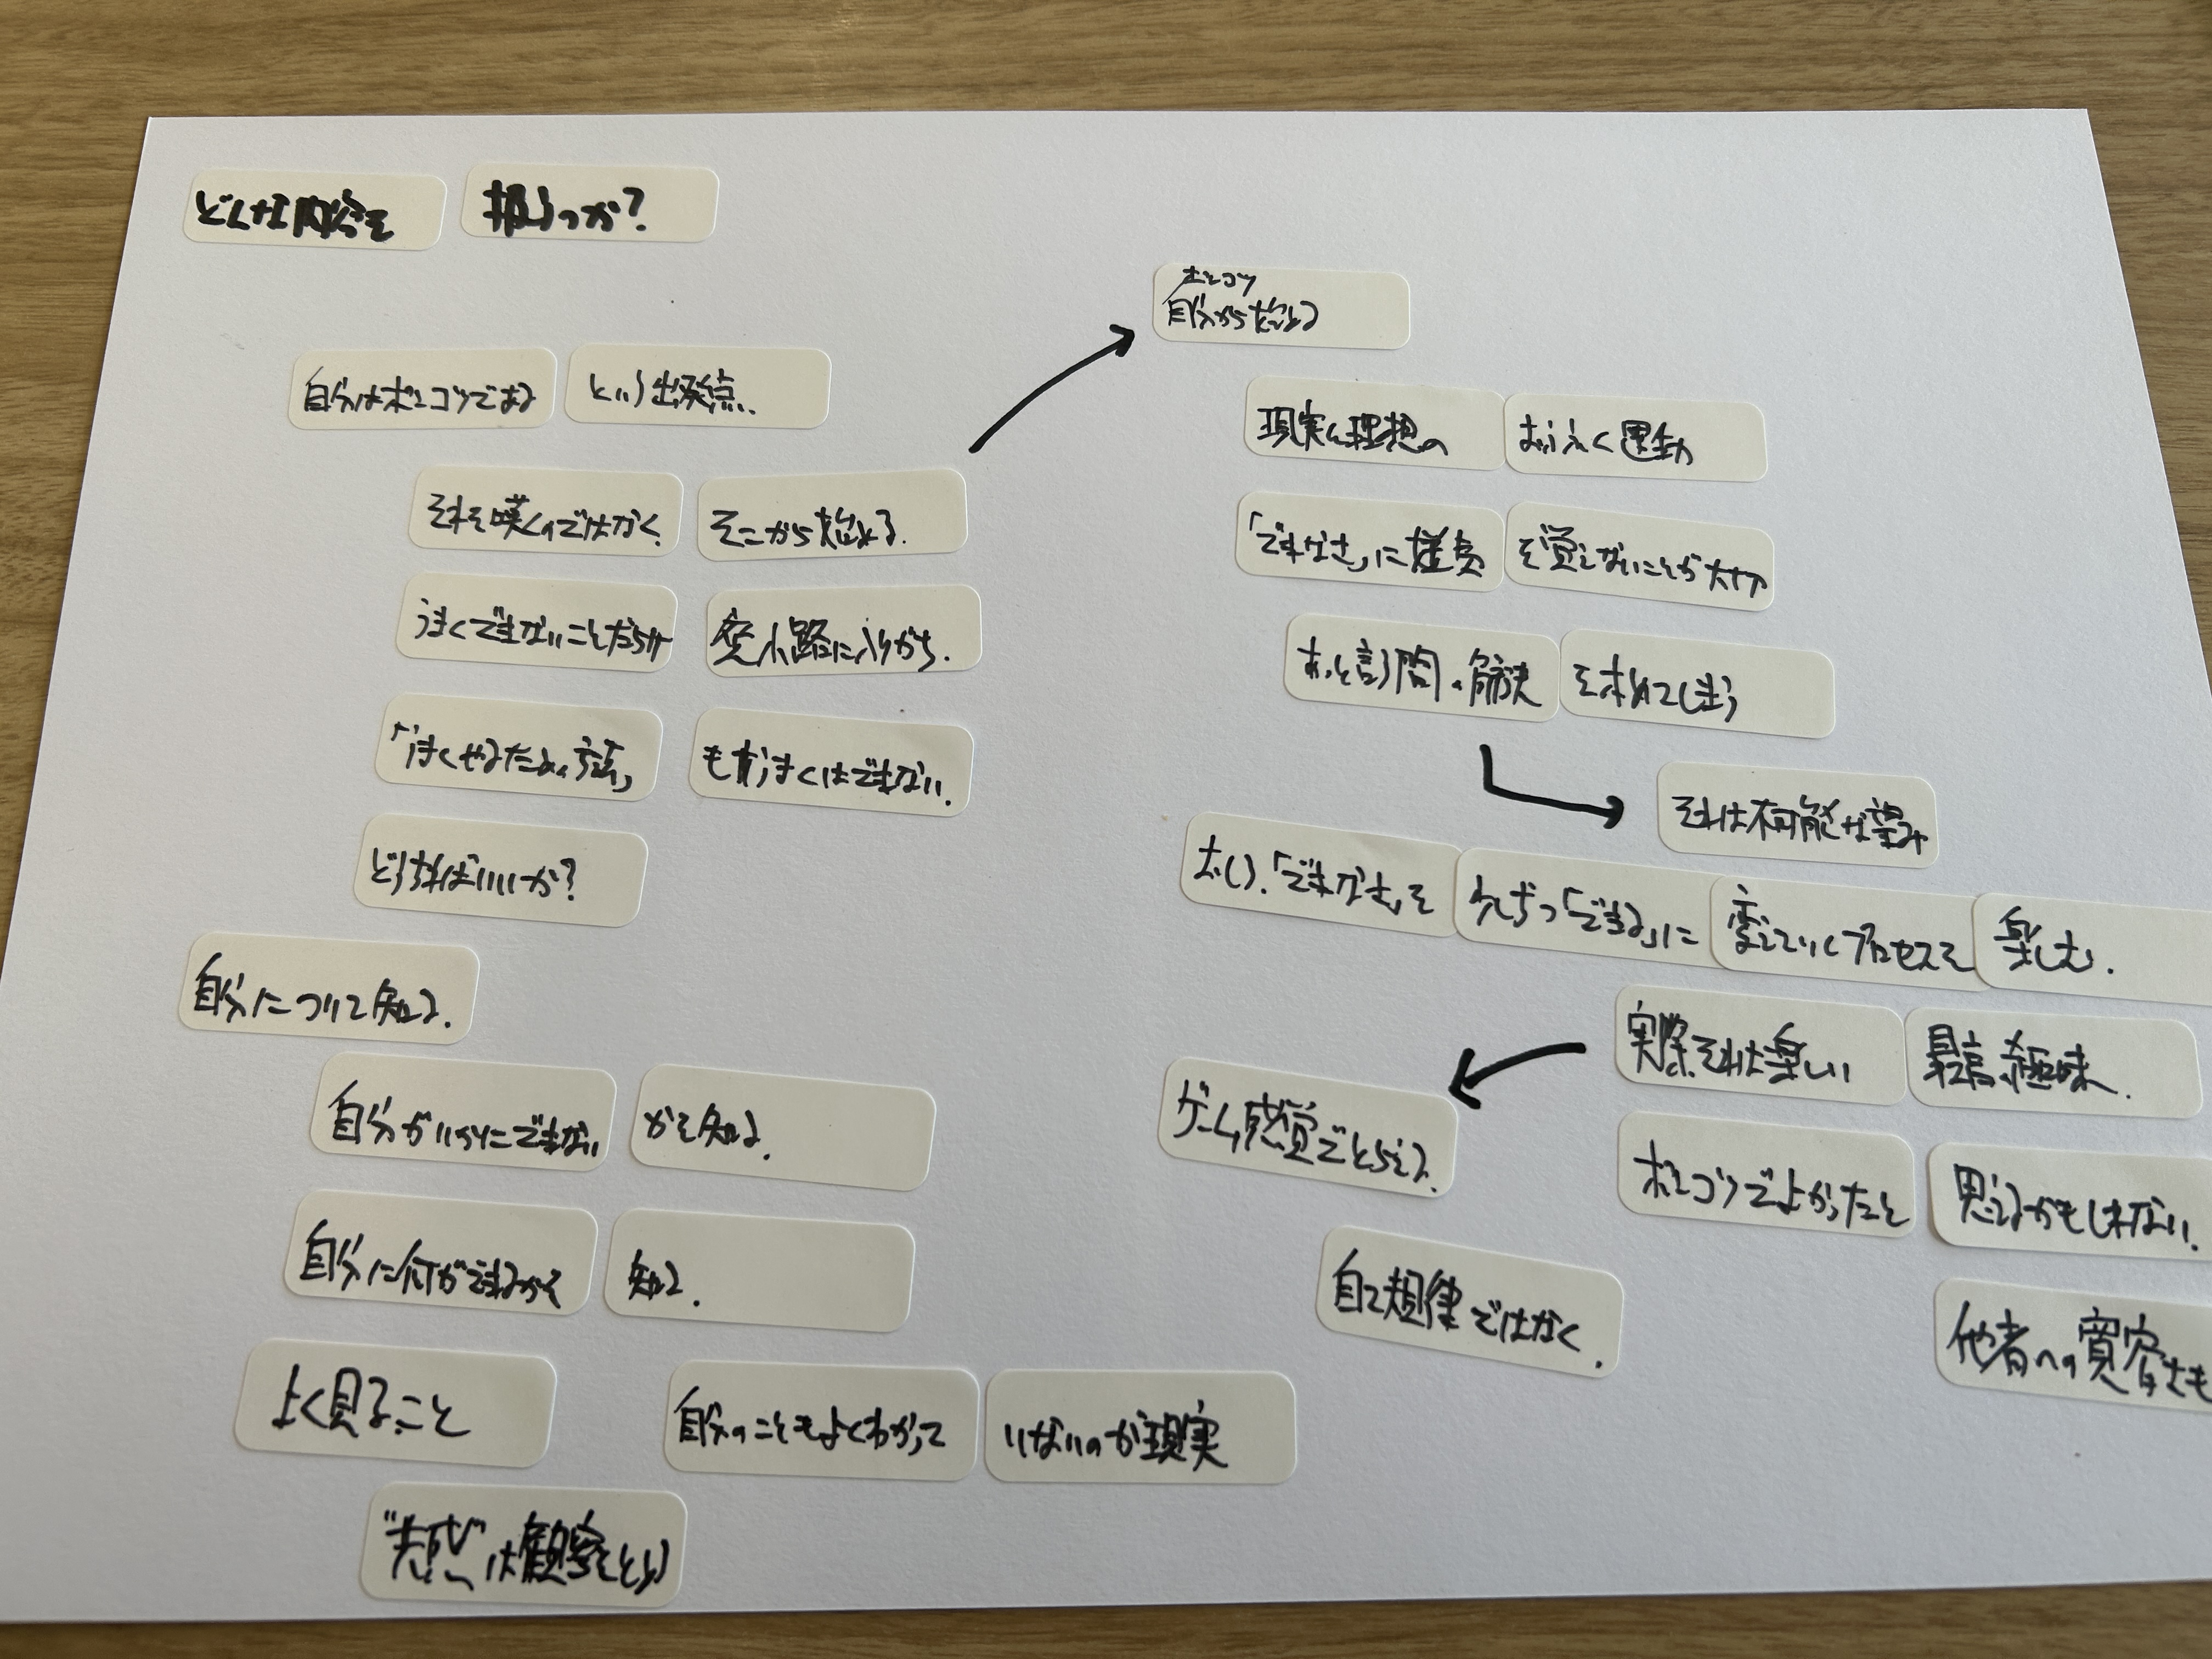 どんな内容を 扱うのか?
自分はポンコツである という出発点.
それを嘆くのではなく. そこから始める.
うまくできないことだらけ 袋小路に入りがち.
「うまくやるための方法」 もまたうまくはできない.
どうすればいいか?
自分について知る.
自分がいかにできない かを知る.
自分に何ができるかを 知る.
よく見ること
自分のこともよくわかって いないのが現実
"失敗"は観察をとお
ポンコツ
自分から始める
現実と理想の 運動
「できなさ」に嫌気 を覚えないことが大切
あっと言う間の解決 を求めてしまう
それは不可能な望み
むしろ.「できなさ」を 少しずつ「できる」に 変えていくプロセスを 楽しむ.
実際それは楽しい 最高の趣味.
ゲーム感覚でとらえる.
ポンコツでよかったと 思えるかもしれない.
自己規律ではなく.
他者への寛容さも